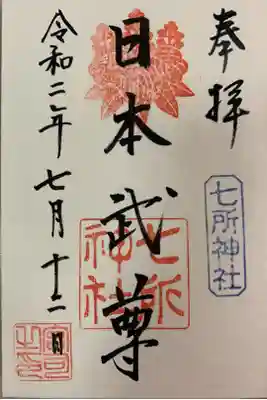 奉拝
七所神社
日本武尊
七所神社
令和二年七月十二日
宮司之印